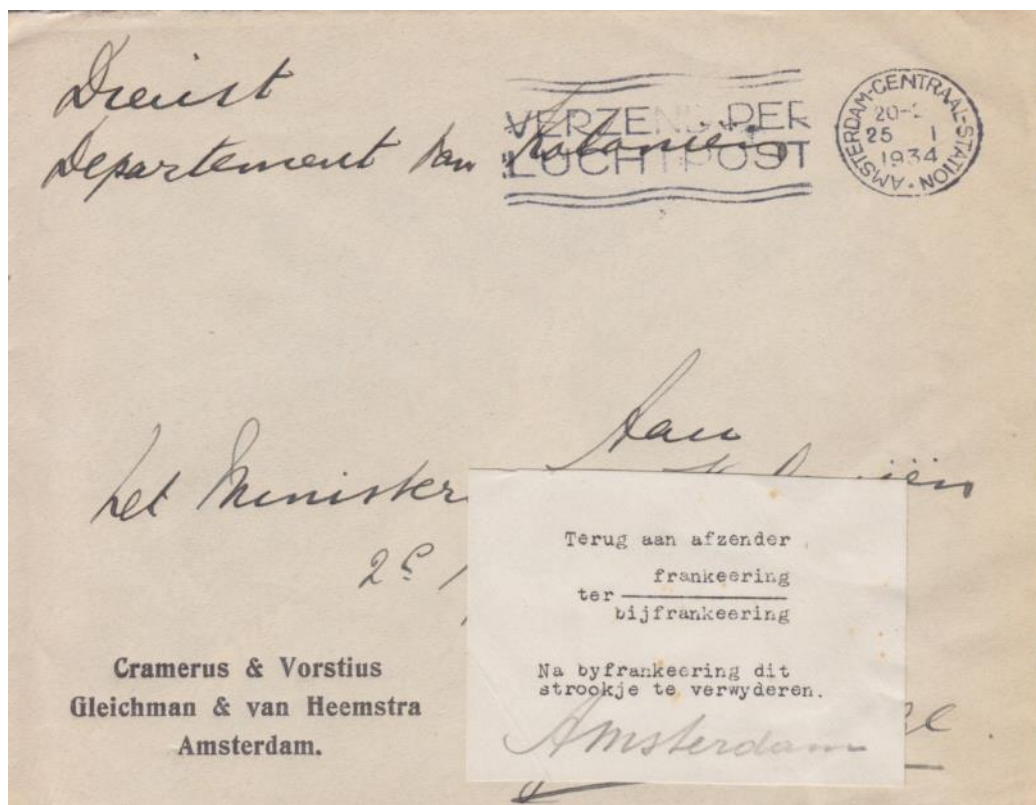 Dienst
Departement van Koloniën
VERZEND PER
LUCHTPOST
AMSTERDAM-CENTRAAL-STATION
20-
25 1
1934
Aan
het Minister
2e
Terug aan afzender
frankeering
ter
bijfrankeering
Na byfrankeering dit
strookje te verwyderen.
Amsterdam
Cramerus & Vorstius
Gleichman & van Heemstra
Amsterdam.